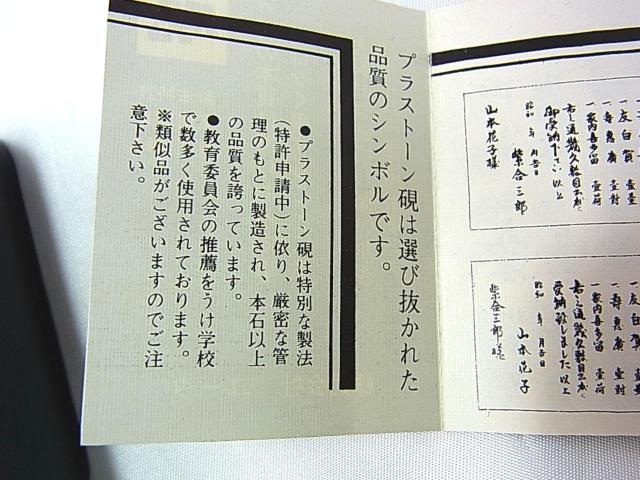 一友白賀 壹臺
一寿恵廣 壹封
一家内喜多留 壹荷
右之通幾久敷目出度く
御受納下さい 以上
昭和 年 月 吉日
三郎
山本花子様
一友白賀
一寿恵廣 壹封
一家内喜多留 壹荷
右之通幾久敷目出度く
受納致しました 以上
昭和 年 月 吉日
山本花子
三郎様
プラストーン硯は選び抜かれた
品質のシンボルです。
●プラストーン硯は特別な製法
(特許申請中)に依り、厳密な管
理のもとに製造され、本石以上
の品質を誇っています。
●教育委員会の推薦をうけ学校
で数多く使用されております。
※類似品がございますのでご注
意下さい。